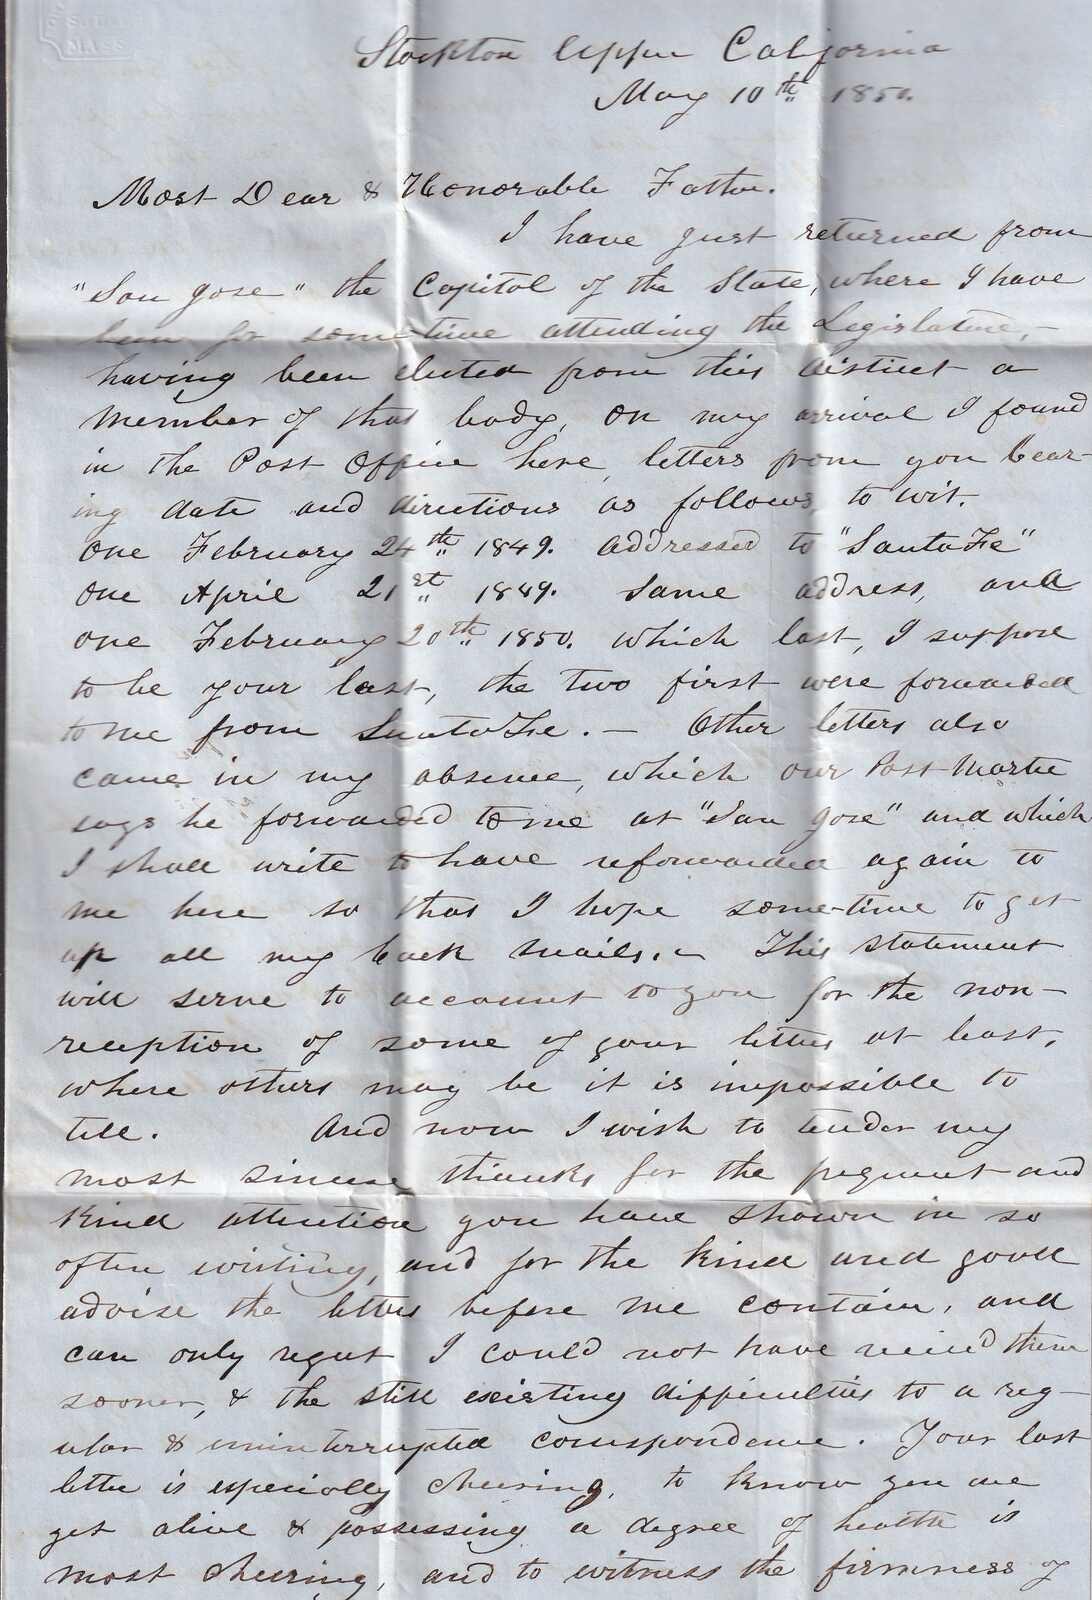 MASS
Stockton Upper California
May 10th 1850.
Most Dear & Honorable Father.
I have just returned from
"San Jose" the Capitol of the State, where I have
been for some-time attending the Legislature, -
having been elected from this district a
member of that body, on my arrival I found
in the Post Office here, letters from you bear-
ing date and directions as follows, to wit.
One February 24th 1849. addressed to "SantaFe"
One April 21st 1849. same address, and
one February 20th 1850. which last, I suppose
to be your last, the two first were forwarded
to me from SantaFee. - Other letters also
came in my absence, which our Post Master
says he forwarded to me at "San Jose" and which
I shall write to have reforwarded again to
me here so that I hope some-time to get
up all my back mails. - This statement
will serve to account to you for the non-
reception of some of your letters at least,
where others may be it is impossible to
tell. And now I wish to tender my
most sincere thanks for the and
kind attention you have shown in so
often writing, and for the kind and good
advise the letters before me contain, and
can only regret I could not have recieved them
sooner, & the still existing difficulties to a reg-
ular & uninterrupted correspondence. Your last
letter is especially cheering, to know you are
yet alive & possessing a degree of health is
most cheering, and to witness the firmness of